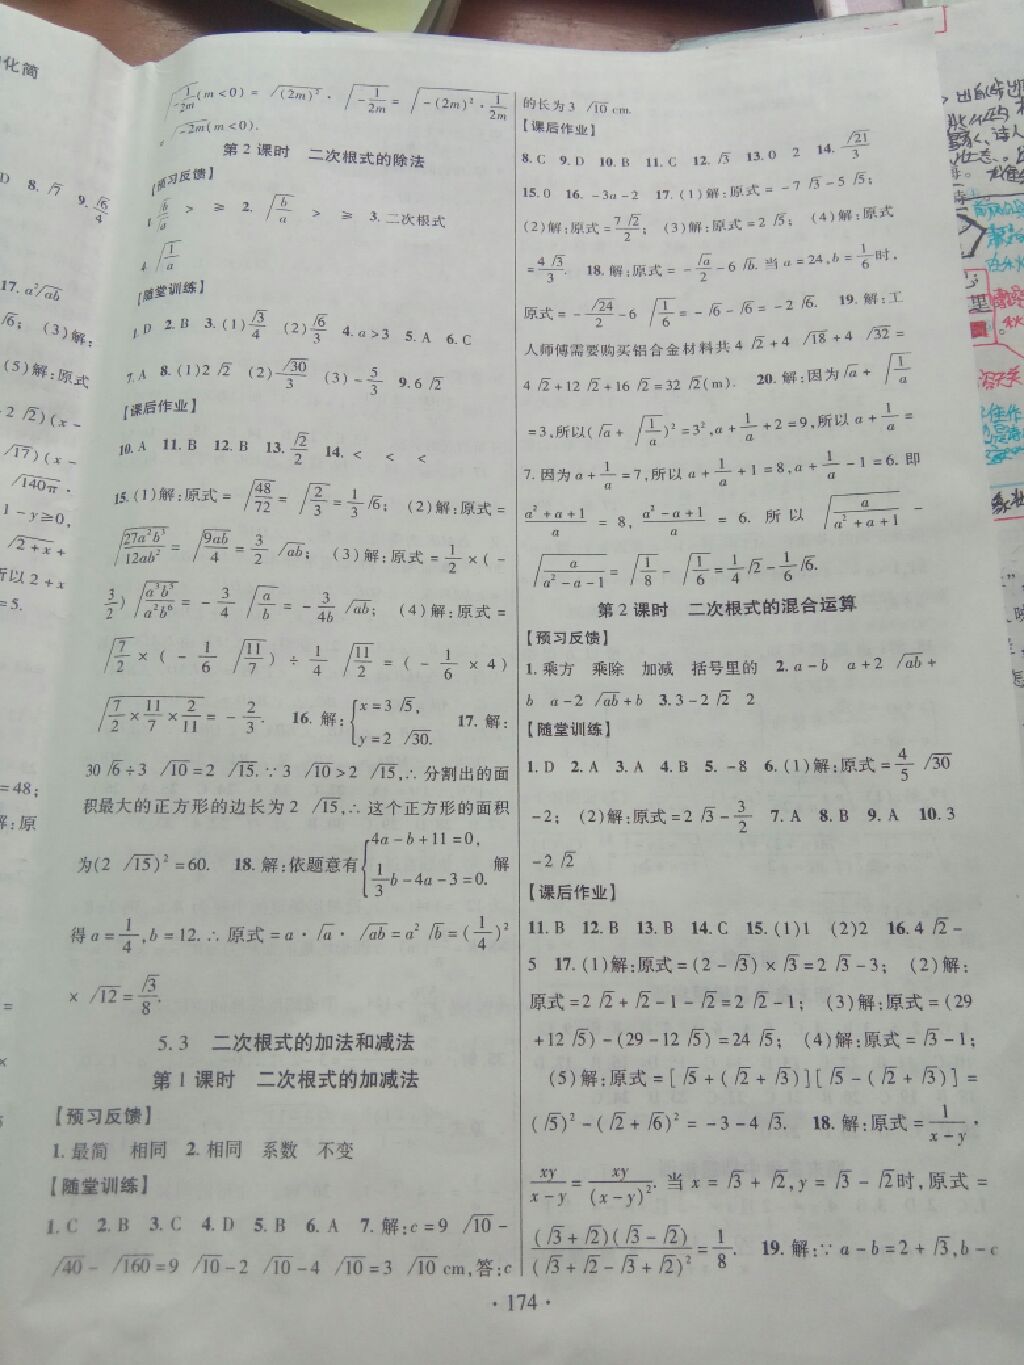 √(-1/2m)(m<0)=√(2m)²·√(-1/2m)=√(-(2m)²·1/2m)
√-2m(m<0).
第2课时 二次根式的除法
【预习反馈】
1.√6/a > ≥ 2.√(b/a) > ≥ 3.二次根式
4.√(1/a)
【随堂训练】
1.D 2.B 3.(1)√3/4 (2)√6/3 4.a>3 5.A 6.C
7.A 8.(1)2√2 (2)√30/3 (3)-5/3 9.6√2
【课后作业】
10.A 11.B 12.B 13.√2/2 14.< < <
15.(1)解:原式=√(48/72)=√(2/3)=1/3√6; (2)解:原式=
√(27a²b³/12ab²)=√(9ab/4)=3/2√ab; (3)解:原式=1/2×(-
3/2)√(a³b³/a²b⁶)=-3/4√(a/b)=-3/4b√ab; (4)解:原式=
√(7/2)×(-1/6√(11/7))÷1/4√(11/2)=(-1/6×4)
√(7/2×11/7×2/11)=-2/3. 16.解:{x=3√5, y=2√30. 17.解:
30√6÷3√10=2√15.∵3√10>2√15,∴分割出的面
积最大的正方形的边长为2√15,∴这个正方形的面积
为(2√15)²=60. 18.解:依题意有{4a-b+11=0, 1/3b-4a-3=0. 解
得a=1/4,b=12.∴原式=a·√a·√ab=a²√b=(1/4)²
×√12=√3/8.
5.3 二次根式的加法和减法
第1课时 二次根式的加减法
【预习反馈】
1.最简 相同 2.相同 系数 不变
【随堂训练】
1.C 2.B 3.C 4.D 5.B 6.A 7.解:c=9√10-
√40-√160=9√10-2√10-4√10=3√10cm,答:c
的长为3√10cm.
【课后作业】
8.C 9.D 10.B 11.C 12.√3 13.0 2 14.√21/3
15.0 16.-3a-2 17.(1)解:原式=-7√3-5√5;
(2)解:原式=7√2/2; (3)解:原式=2√5; (4)解:原式
=4√3/3. 18.解:原式=-√a/2-6√b.当a=24,b=1/6时,
原式=-√24/2-6√(1/6)=-√6-√6=-2√6. 19.解:工
人师傅需要购买铝合金材料共4√2+4√18+4√32=
4√2+12√2+16√2=32√2(m). 20.解:因为√a+√(1/a)
=3,所以(√a+√(1/a))²=3²,a+1/a+2=9,所以a+1/a=
7.因为a+1/a=7,所以a+1/a+1=8,a+1/a-1=6.即
(a²+a+1)/a=8,(a²-a+1)/a=6.所以√(a/(a²+a+1))-
√(a/(a²-a-1))=√(1/8)-√(1/6)=1/4√2-1/6√6.
第2课时 二次根式的混合运算
【预习反馈】
1.乘方 乘除 加减 括号里的 2.a-b a+2√ab+
b a-2√ab+b 3.3-2√2 2
【随堂训练】
1.D 2.A 3.A 4.B 5.-8 6.(1)解:原式=4/5√30
-2; (2)解:原式=2√3-3/2 7.A 8.B 9.A 10.3
-2√2
【课后作业】
11.B 12.B 13.B 14.C 15.(1)1 (2)2 16.4√2-
5 17.(1)解:原式=(2-√3)×√3=2√3-3; (2)解:
原式=2√2+√2-1-√2=2√2-1; (3)解:原式=(29
+12√5)-(29-12√5)=24√5; (4)解:原式=√3-1;
(5)解:原式=[√5+(√2+√3)][√5-(√2+√3)]=
(√5)²-(√2+√6)²=-3-4√3. 18.解:原式=1/(x-y)·
xy/(x-y)=xy/(x-y)².当x=√3+√2,y=√3-√2时,原式=
(√3+√2)(√3-√2)/(√3+√2-√3+√2)²=1/8. 19.解:∵a-b=2+√3,b-c
·174·
化简
D 8.√7 9.√6/4
17.a²√ab
√6; (3)解:
(5)解:原式
2√2)(x-
√17)(x-
√140π.
1-y≥0,
√2+x+
所以2+x
=5.
=48;
解:原